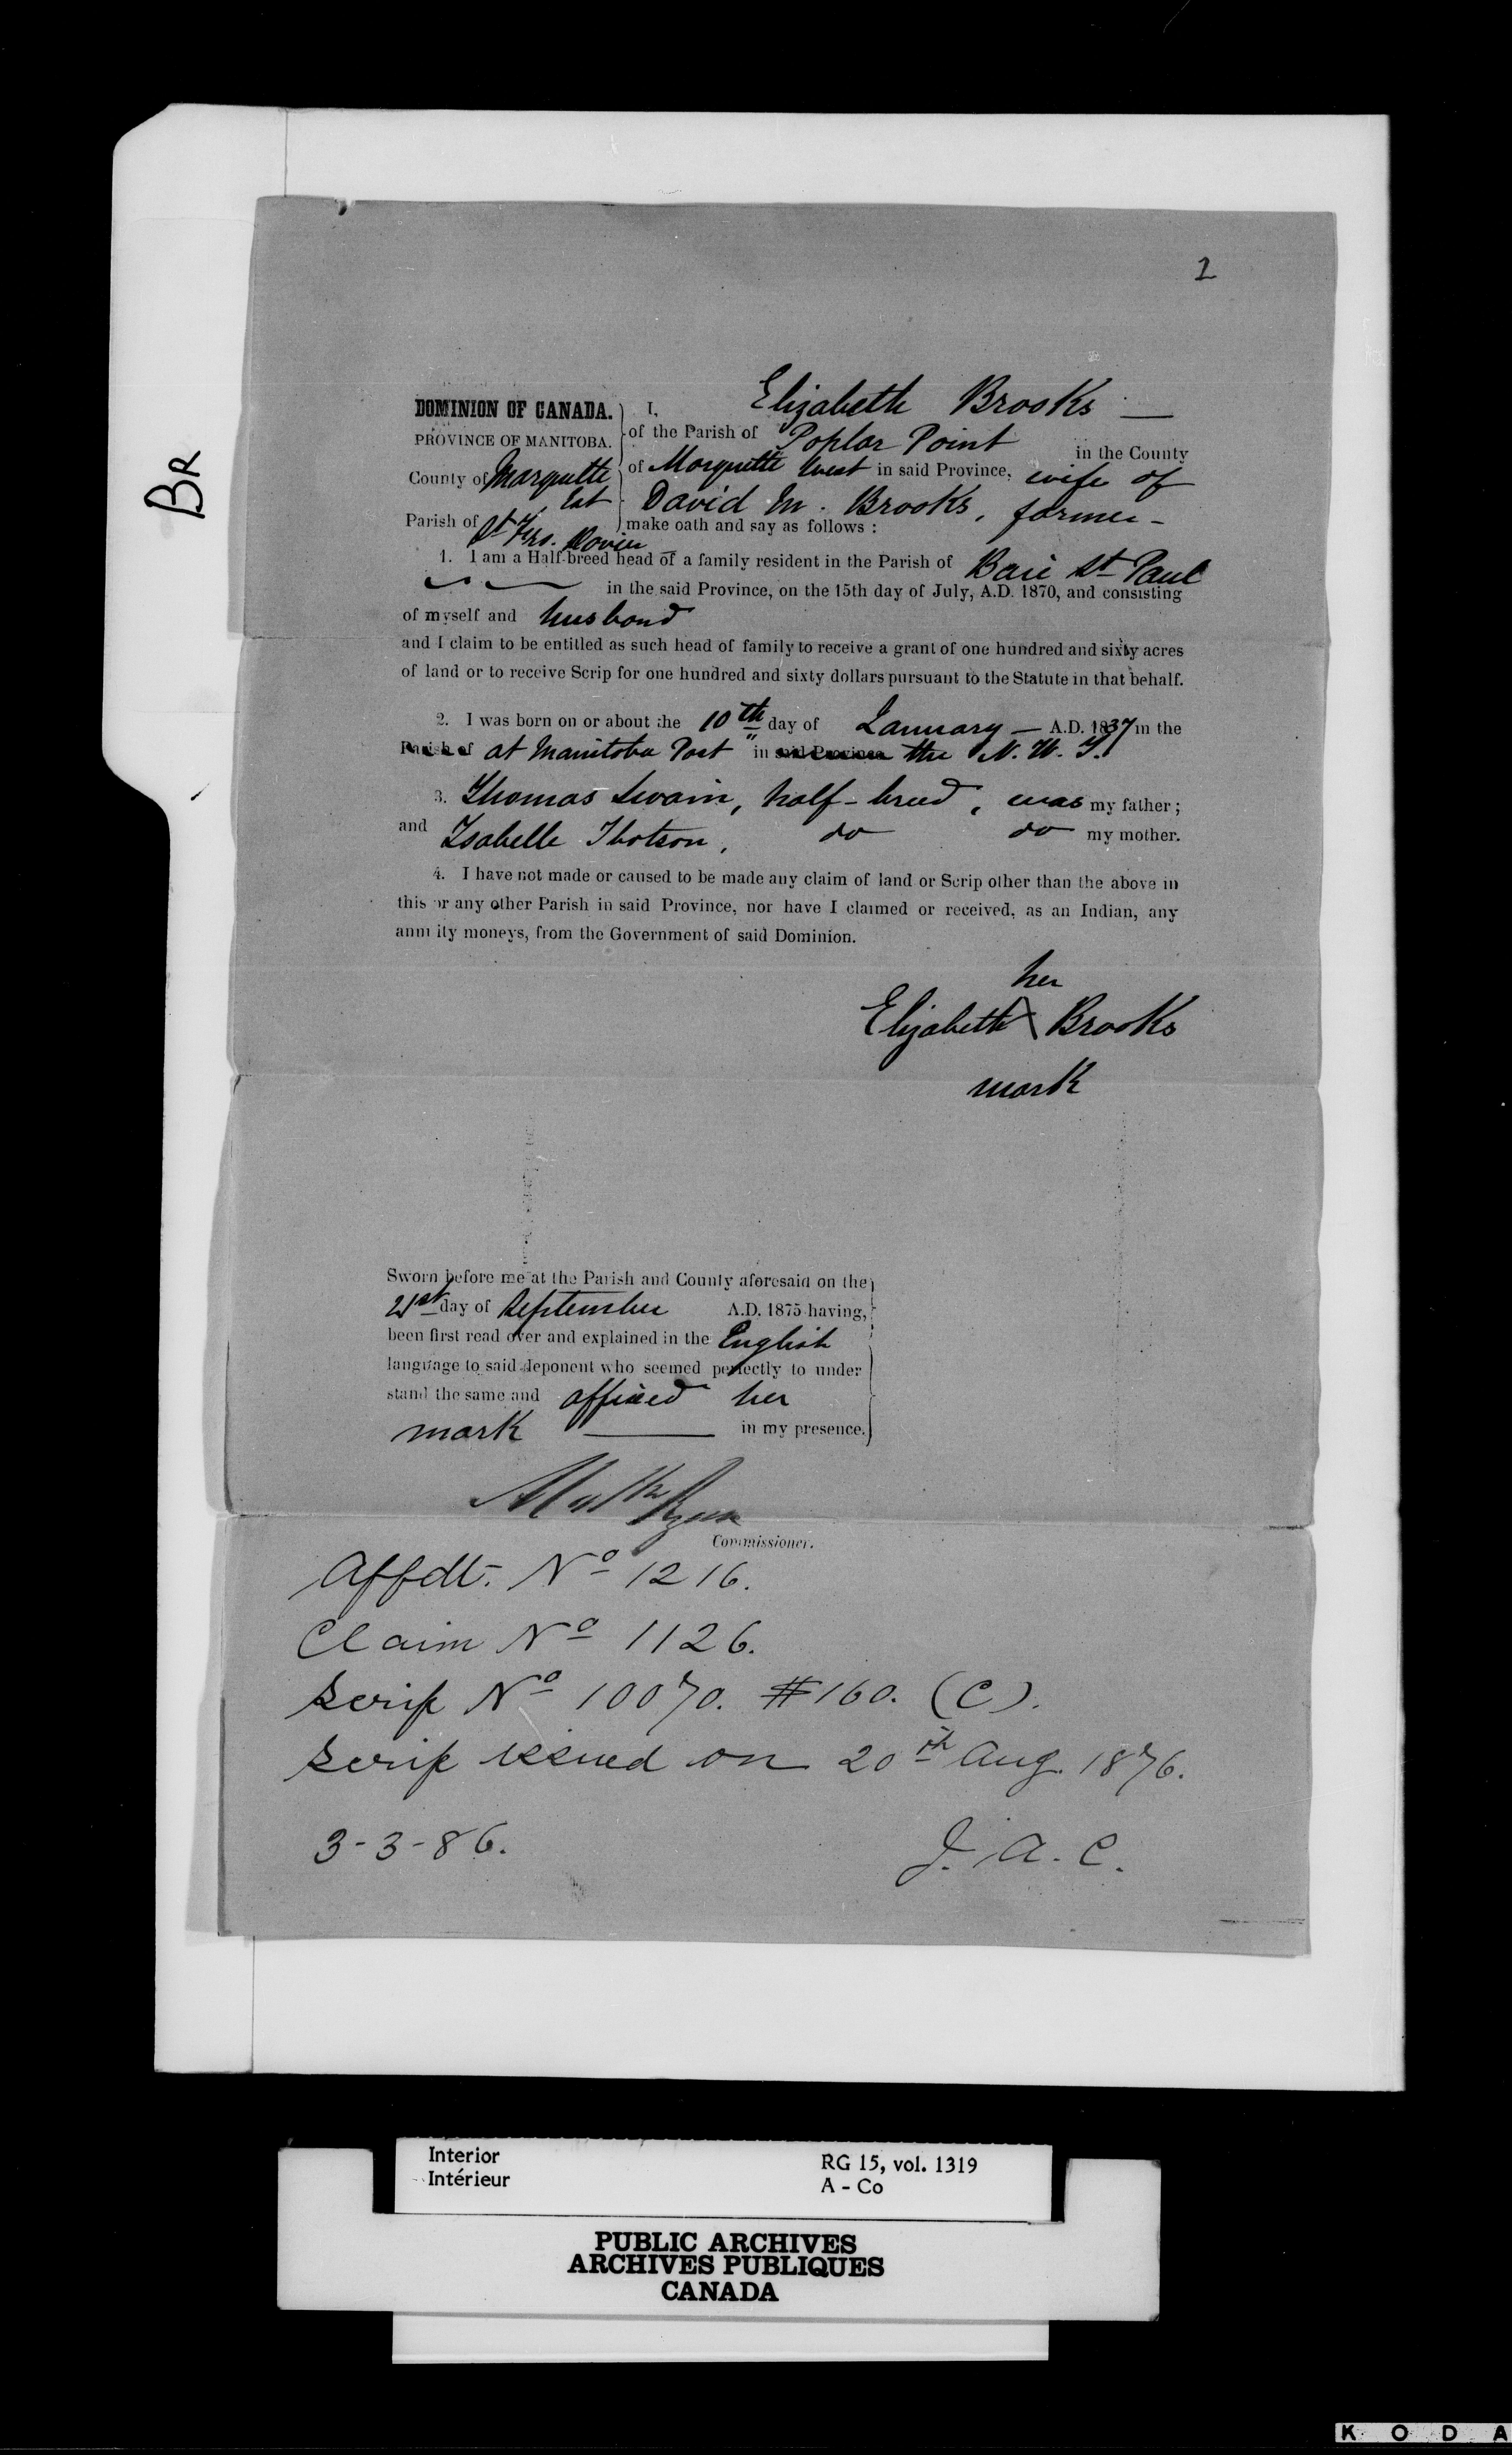 2
BR
Elizabeth Brooks —
DOMINION OF CANADA. I,
of the Parish of Poplar Point in the County
PROVINCE OF MANITOBA.
of Marquette West in said Province, wife of
County of Marquette
Est David M. Brooks, farmer -
Parish of St Frs. Xavier make oath and say as follows :
1. I am a Half-breed head of a family resident in the Parish of Baie St Paul
in the said Province, on the 15th day of July, A.D. 1870, and consisting
of myself and husband
and I claim to be entitled as such head of family to receive a grant of one hundred and sixty acres
of land or to receive Scrip for one hundred and sixty dollars pursuant to the Statute in that behalf.
2. I was born on or about the 10th day of January — A.D. 1837 in the
Parish of at Manitoba Post in said Province the N. W. T.
3. Thomas Swain, half-breed, was my father;
and Isabelle Ibotson, do do my mother.
4. I have not made or caused to be made any claim of land or Scrip other than the above in
this or any other Parish in said Province, nor have I claimed or received, as an Indian, any
annuity moneys, from the Government of said Dominion.
her
Elizabeth X Brooks
mark
Sworn before me at the Parish and County aforesaid on the
21st day of September A.D. 1875 having,
been first read over and explained in the English
language to said deponent who seemed perfectly to under
stand the same and affixed her
mark — in my presence.
Math Ryan
Commissioner.
Affdt. No 1216.
Claim No 1126.
Scrip No 10070. $160. (C).
Scrip issued on 20th Aug. 1876.
3-3-86. J. A. C.
Interior RG 15, vol. 1319
Intérieur A - Co
PUBLIC ARCHIVES
ARCHIVES PUBLIQUES
CANADA
K O D A